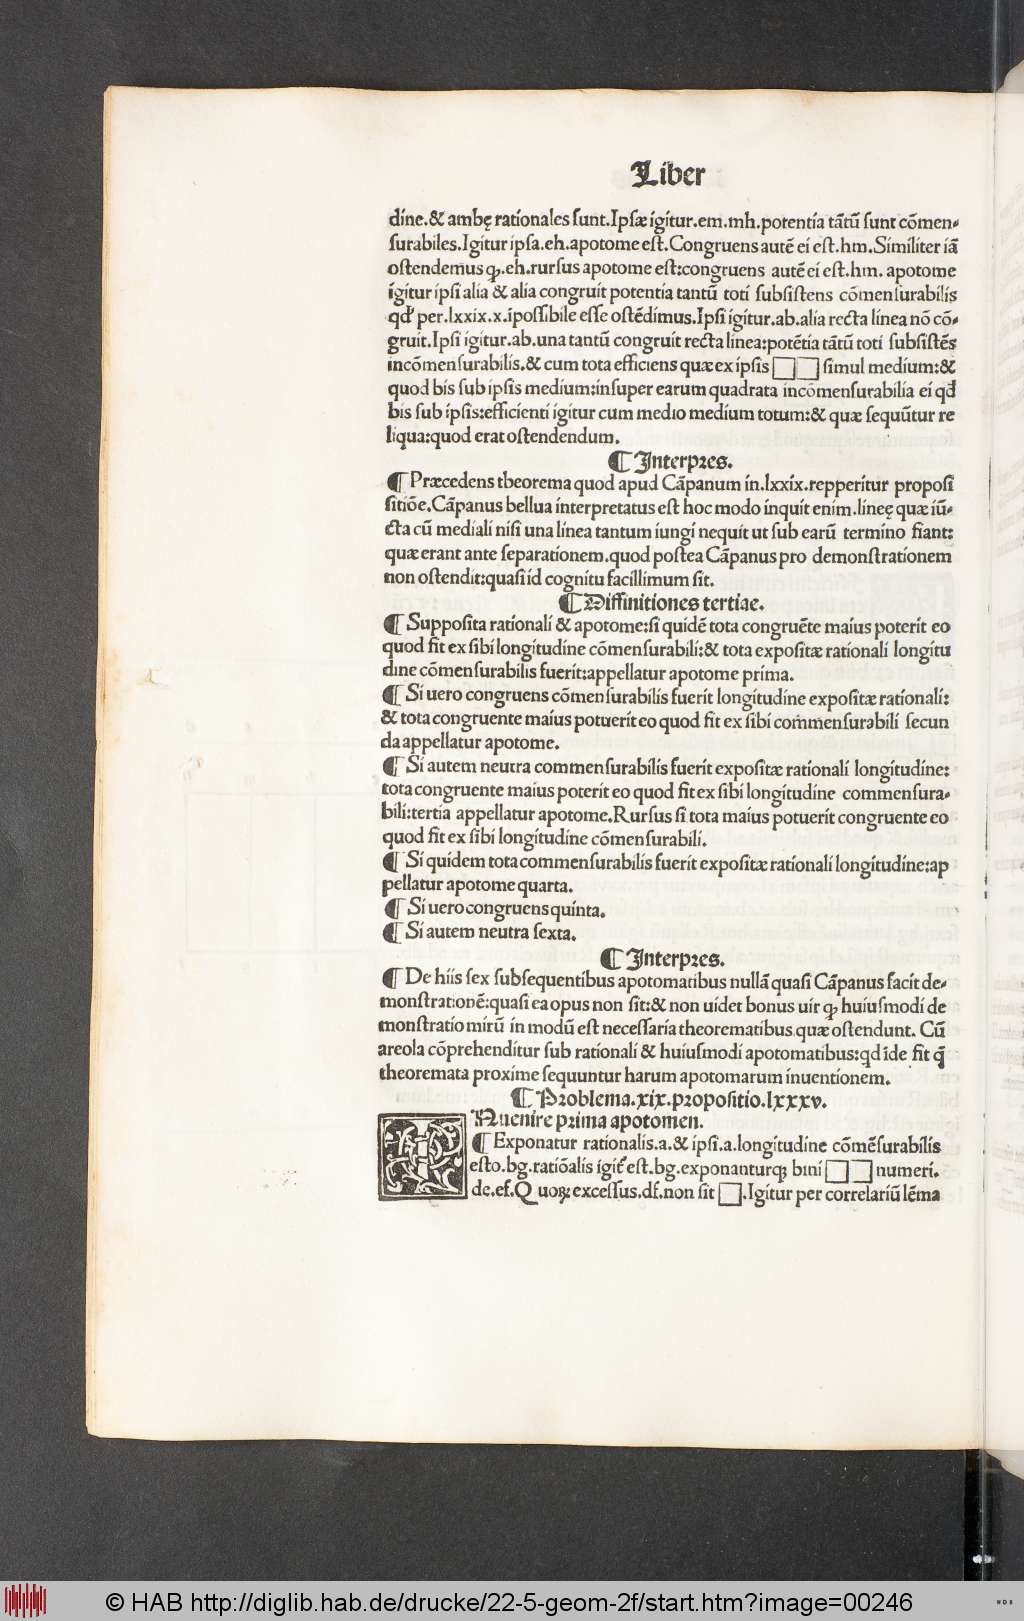 Liber
dine.& ambę rationales sunt.Ipsæ igitur.em.mh.potentia tãtũ sunt cõmen-
surabiles.Igitur ipsa.eh.apotome est.Congruens autẽ ei est.hm.Similiter iã
ostendemus ꝙ.eh.rursus apotome est:congruens autẽ ei est.hm. apotome
igitur ipsi alia & alia congruit potentia tantũ toti subsistens cõmensurabilis
qđ per.lxxix.x.ĩpossibile esse ostẽdimus.Ipsi igitur.ab.alia recta linea nõ cõ-
gruit.Ipsi igitur.ab.una tantũ congruit recta linea:potẽtia tãtũ toti subsistẽs
incõmensurabilis.& cum tota efficiens quæ ex ipsis □□ simul medium:&
quod bis sub ipsis medium:insuper earum quadrata incõmensurabilia ei qđ
bis sub ipsis:efficienti igitur cum medio medium totum:& quæ sequũtur re
liqua:quod erat ostendendum.
¶ Interpres.
¶ Præcedens theorema quod apud Cãpanum in.lxxix.repperitur proposi
sitiõe.Cãpanus bellua interpretatus est hoc modo inquit enim.lineę quæ iũ-
cta cũ mediali nisi una linea tantum iungi nequit ut sub earũ termino fiant:
quæ erant ante separationem.quod postea Cãpanus pro demonstrationem
non ostendit:quasi id cognitu facillimum sit.
¶ Diffinitiones tertiae.
¶ Supposita rationali & apotome:si quidẽ tota congruẽte maius poterit eo
quod fit ex sibi longitudine cõmensurabili:& tota expositæ rationali longitu
dine cõmensurabilis fuerit:appellatur apotome prima.
¶ Si uero congruens cõmensurabilis fuerit longitudine expositæ rationali:
& tota congruente maius potuerit eo quod fit ex sibi commensurabili secun
da appellatur apotome.
¶ Si autem neutra commensurabilis fuerit expositæ rationali longitudine:
tota congruente maius poterit eo quod fit ex sibi longitudine commensura-
bili:tertia appellatur apotome.Rursus si tota maius potuerit congruente eo
quod fit ex sibi longitudine cõmensurabili.
¶ Si quidem tota commensurabilis fuerit expositæ rationali longitudine:ap
pellatur apotome quarta.
¶ Si uero congruens quinta.
¶ Si autem neutra sexta.
¶ Interpres.
¶ De hiis sex subsequentibus apotomatibus nullã quasi Cãpanus facit de-
monstrationẽ:quasi ea opus non sit:& non uidet bonus uir ꝙ huiusmodi de
monstratio mirũ in modũ est necessaria theorematibus quæ ostendunt. Cũ
areola cõprehenditur sub rationali & huiusmodi apotomatibus:qd ĩde fit q̃
theoremata proxime sequuntur harum apotomarum inuentionem.
¶ Problema.xix.propositio.lxxxv.
INuenire prima apotomen.
¶ Exponatur rationalis.a.& ipsi.a.longitudine cõmẽsurabilis
esto.bg.ratiõalis igit̃ est.bg.exponanturq; bini □ □ numeri.
de.ef.Quoꝝ excessus.df.non sit □.Igitur per correlariũ lẽma
© HAB http://diglib.hab.de/drucke/22-5-geom-2f/start.htm?image=00246